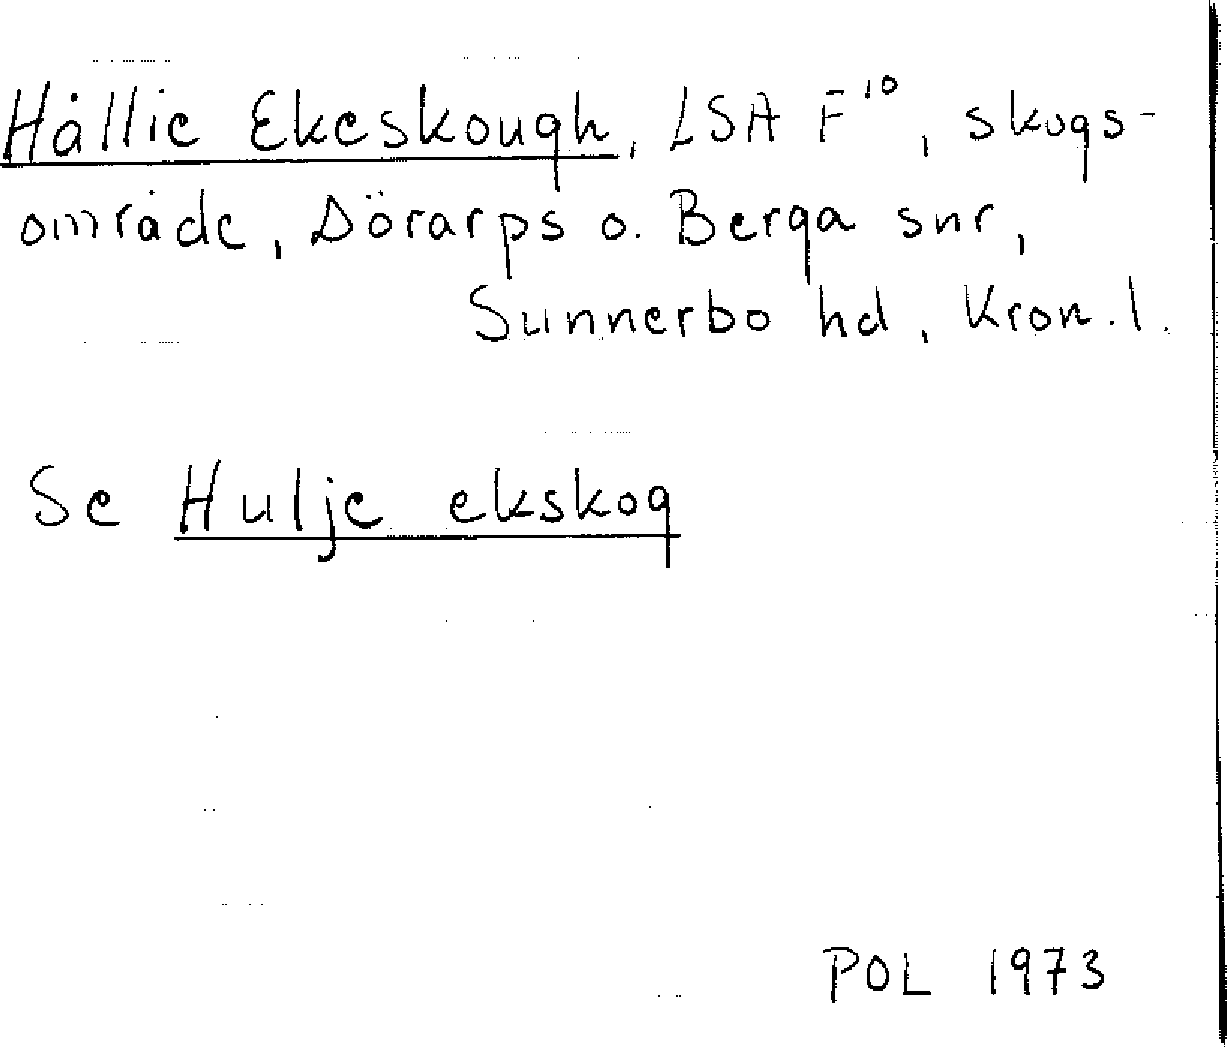 Hållie Ekeskough, LSA F¹⁰, skogs-
område, Dörarps o. Berga snr,
Sunnerbo hd, Kron. l.
Se Hulje ekskog
POL 1973